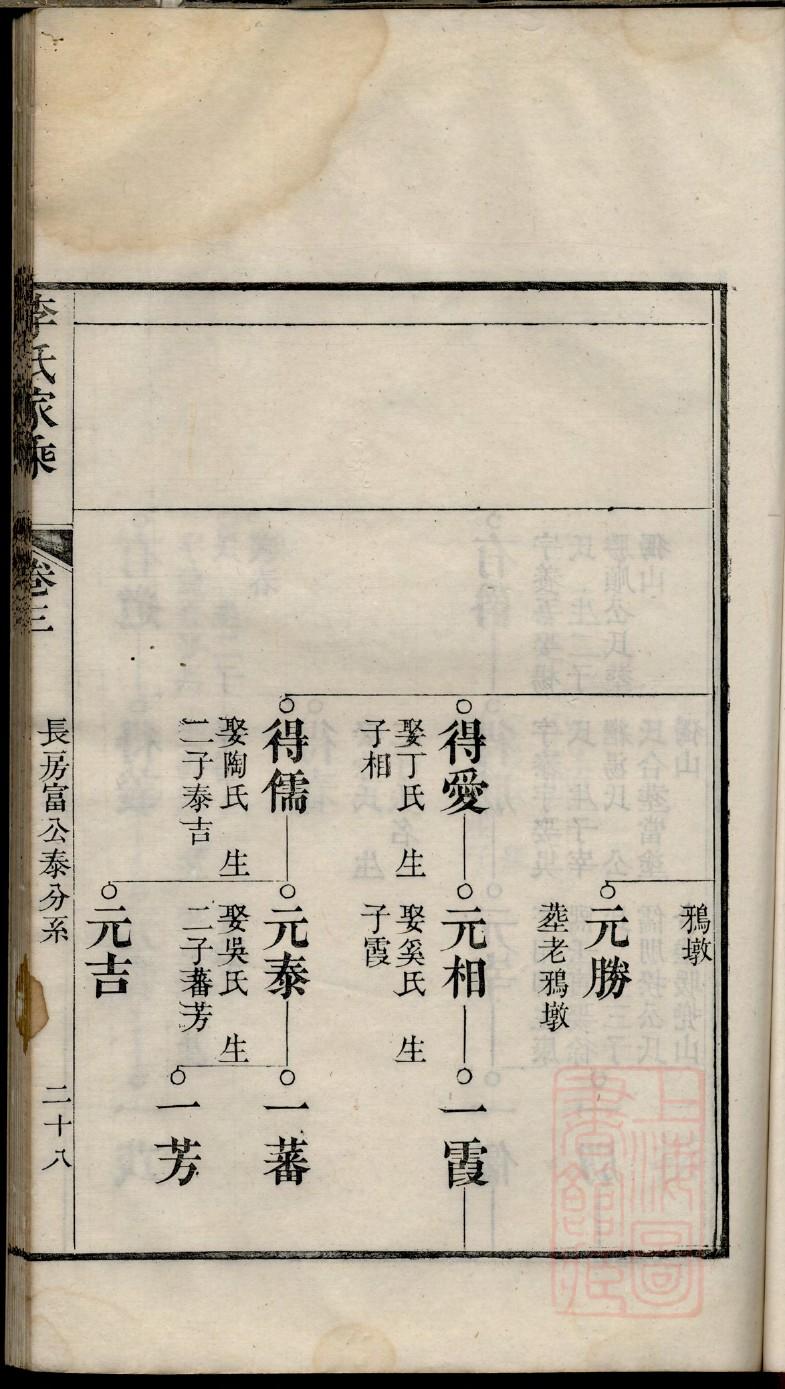 鴉墩
元勝
葬老鴉墩
得愛
娶丁氏 生
子相
元相
娶奚氏 生
子霞
一霞
得儒
娶陶氏 生
二子泰吉
元泰
娶吳氏 生
二子蕃芳
一蕃
一芳
元吉
李氏家乘
卷三
長房富公泰分系
二十八
上海圖書館藏